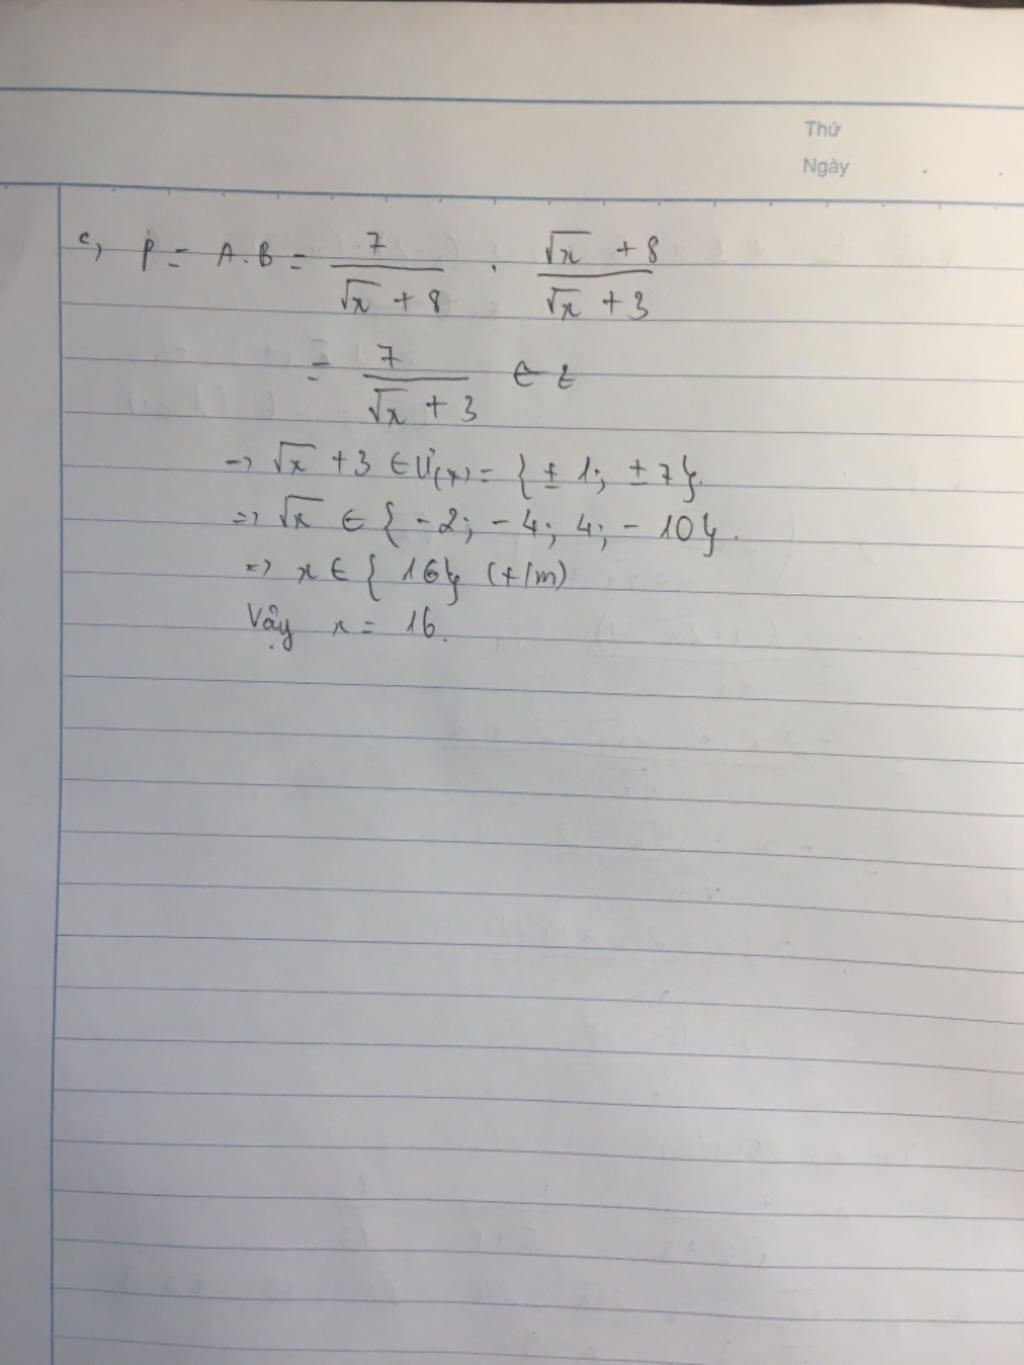 Thứ
Ngày
c, P = A.B = 7/(√x + 8) . (√x + 8)/(√x + 3)
= 7/(√x + 3) ∈ Z
→ √x + 3 ∈ Ư(7) = { ± 1; ± 7}.
=> √x ∈ { - 2; - 4; 4; - 10}.
=> x ∈ { 16} (t/m)
Vậy x = 16.